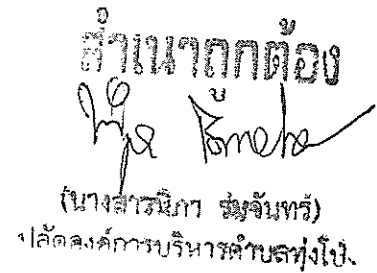 สำเนาถูกต้อง
(นางสารณิภา
ปลัดองค์การบริหารตำบลทุ่งโป่ง